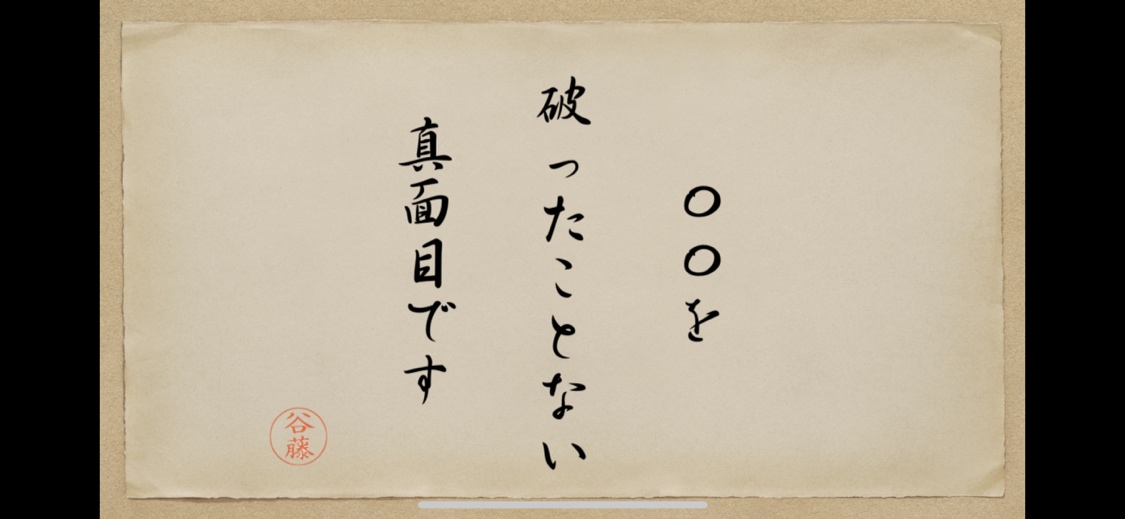 〇〇を
破ったことない
真面目です
谷藤